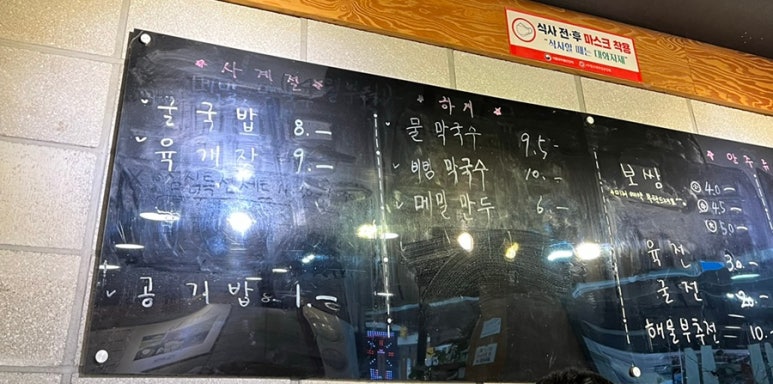 식사 전·후 마스크 착용
"식사할 때는 대화자제"
사계절
물국밥 8.-
육개장 9.-
공기밥 1.-
하계
물 막국수 9.5-
비빔 막국수 10.-
메밀만두 6-
안주
보쌈
소 40-
중 45-
대 50-
육전 30-
굴전 20-
해물부추전 = 10.-